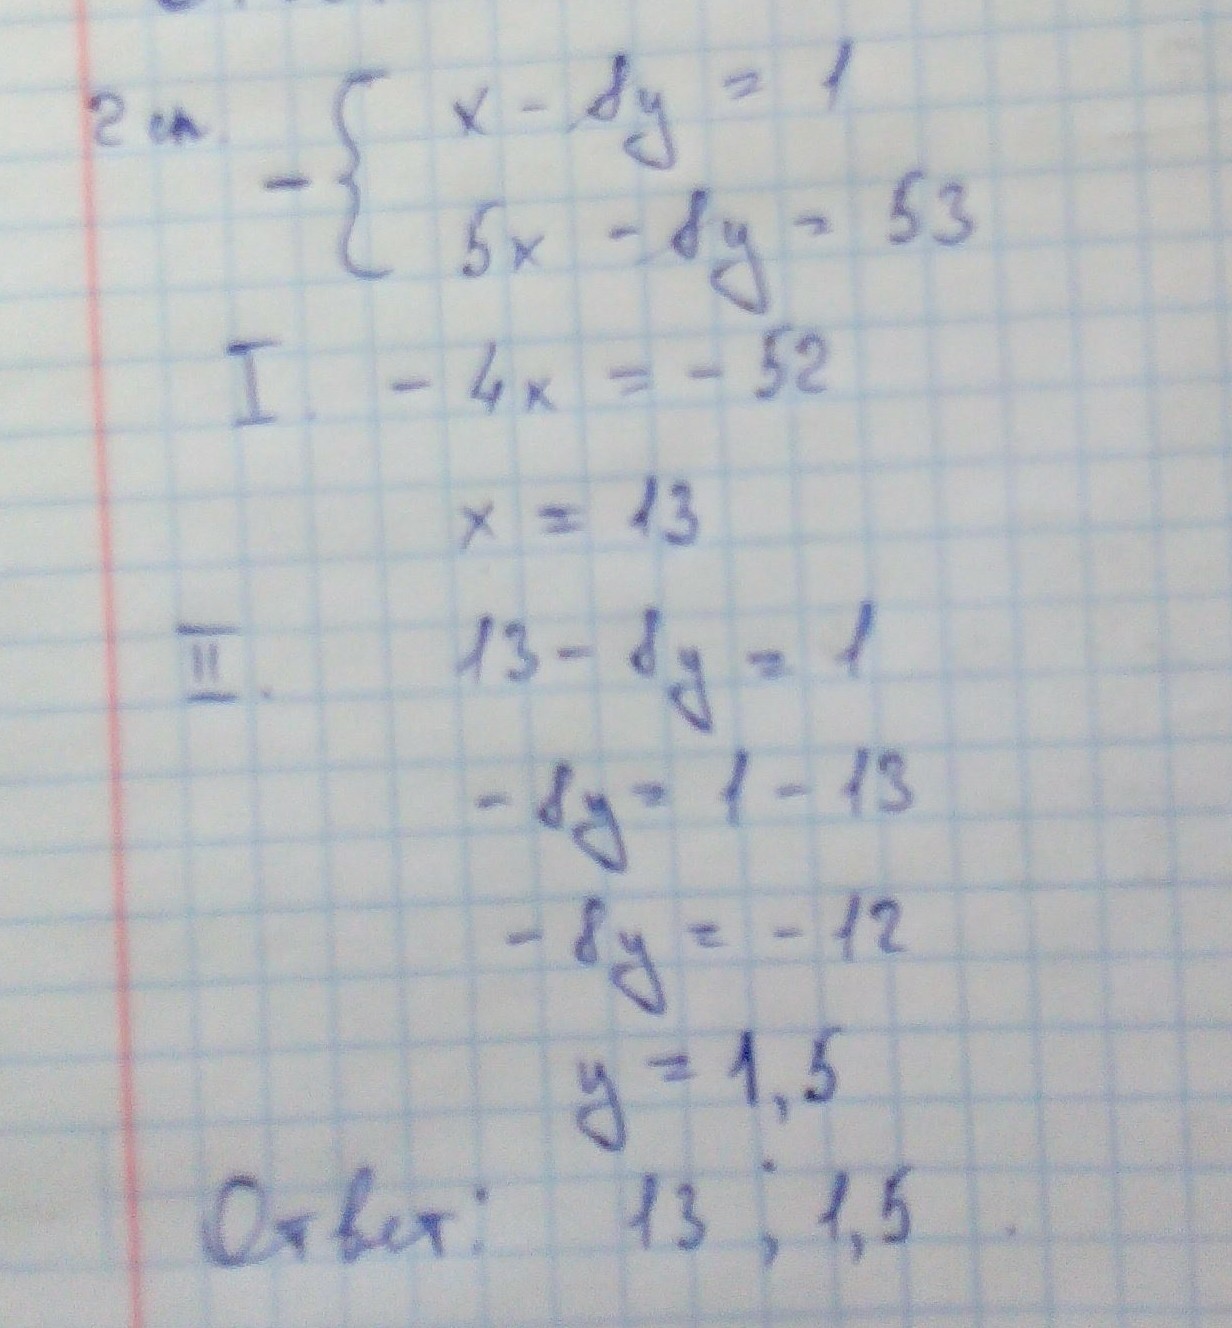 2 сп.
- { x - 8y = 1
5x - 8y = 53
I. - 4x = - 52
x = 13
II. 13 - 8y = 1
- 8y = 1 - 13
- 8y = - 12
y = 1,5
Ответ: 13 ; 1,5 .